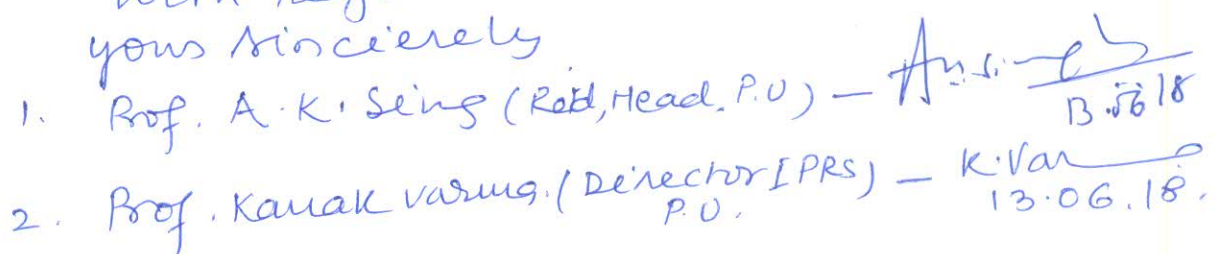 yous Sincierely
1. Prof. A.K. Seing (Retd, Head. P.U) —
13.06.18
2. Prof. Kanak varma. (Director IPRS) — K.Var
P.U. 13.06.18.